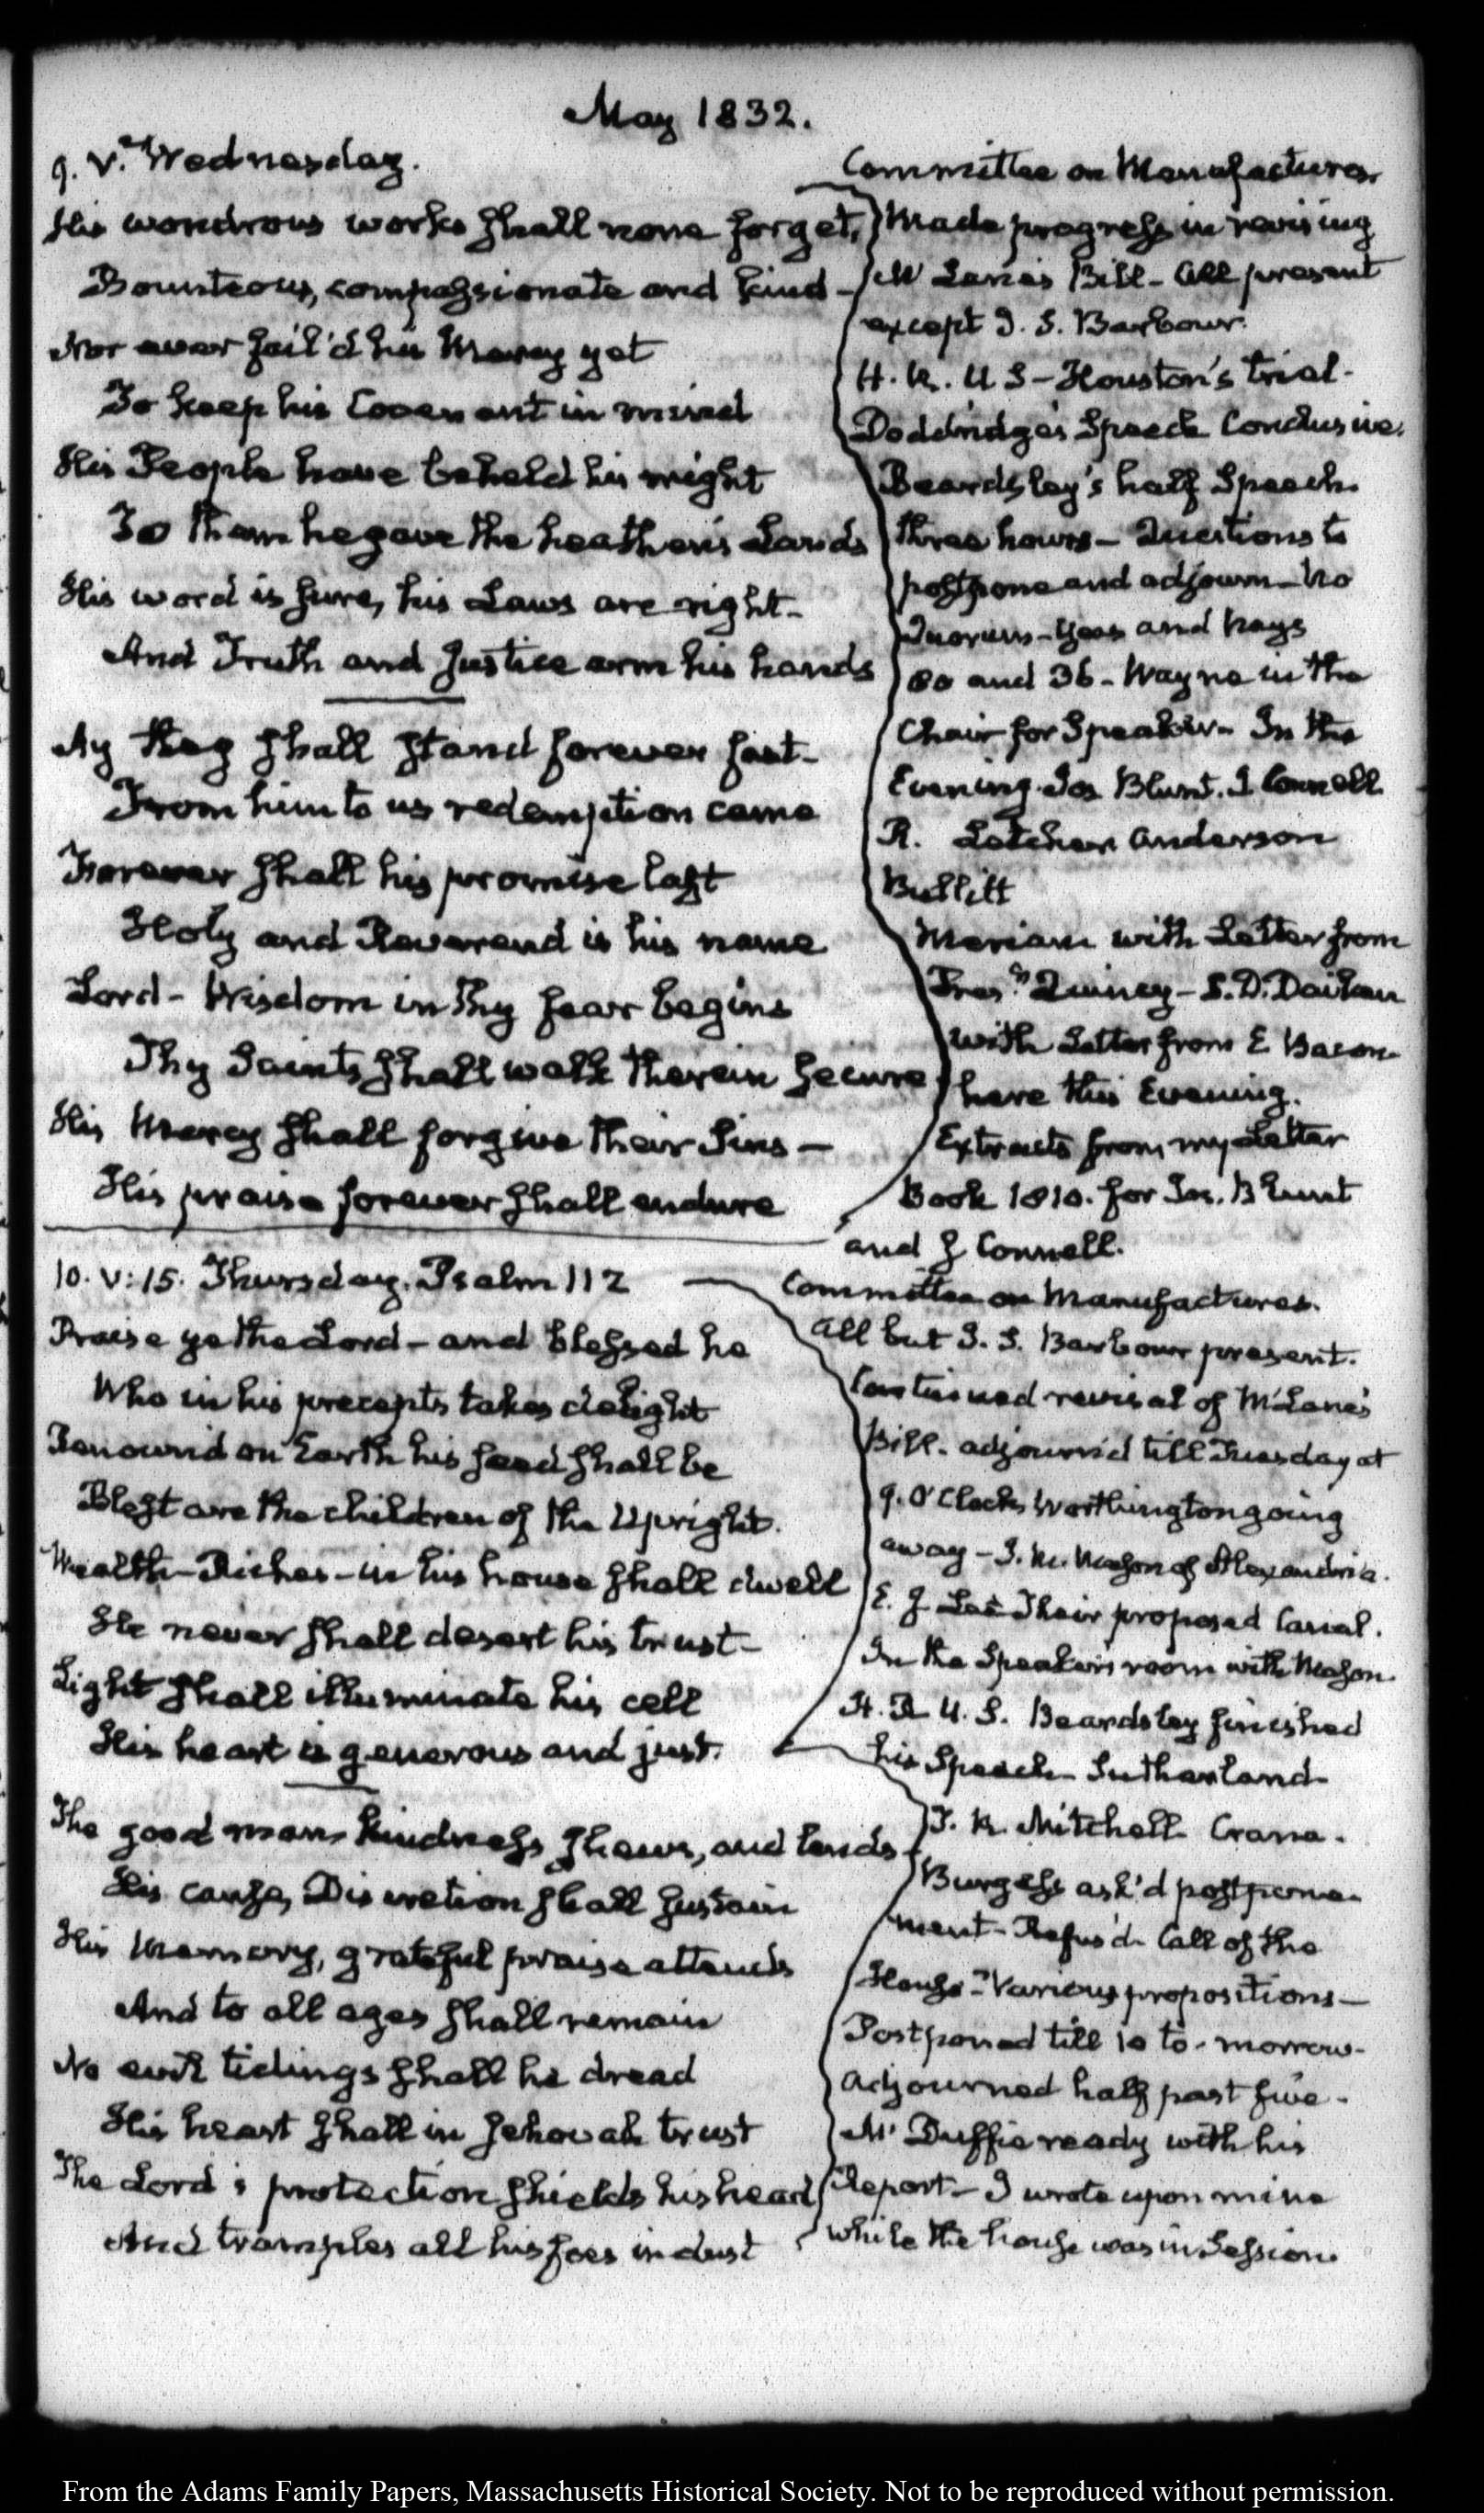 May 1832.
9. V. Wednesday.
His wondrous works shall none forget,
Bounteous, compassionate and kind -
Nor ever fail'd his Mercy yet
To keep his Covenant in mind
His People have beheld his might
To them he gave the heathen's Lands
His word is sure, his Laws are right-
And Truth and Justice arm his hands
Ay they shall stand forever fast-
From him to us redemption came
Forever shall his promise last
Holy and Reverend is his name
Lord - Wisdom in Thy fear begins
Thy Saints shall walk therein secure
His Mercy shall forgive their Sins -
His praise forever shall endure
Committee on Manufactures
Made progress in revising
McLane's Bill - all present
except J. S. Barbour.
H. R. U S - Houston's trial.
Doddridge's Speech Conclusive.
Beardsley's half Speech.
three hours - Questions to
postpone and adjourn - No
Quorum - Yeas and Nays
80 and 36 - Wayne in the
Chair for Speaker - In the
Evening. Jos Blunt. J Connell
R. Letcher Anderson
Bullitt
Meriam with Letter from
Pres.t Quincy - S. D.
with Letter from E Bacon
here this Evening.
Extracts from my Letter
Book 1810. for Jos. Blunt
and J Connell.
10. V: 15. Thursday. Psalm 112
Praise ye the Lord - and blessed he
Who in his precepts takes delight
Renown'd on Earth his seed shall be
Blest are the children of the Upright.
Wealth - Riches - in his house shall dwell
He never shall desert his trust -
Light shall illuminate his cell
His heart is generous and just.
The good man kindness shews, and lends
His cause, Discretion shall sustain
His Memory, grateful praise attends
And to all ages shall remain
No evil tidings shall he dread
His heart shall in Jehovah trust
The Lord's protection shields his head
And tramples all his foes in dust
Committee on Manufactures.
All but J. S. Barbour present.
Continued revisal of McLane's
Bill. adjourn'd till Tuesday at
9. O'Clock, Worthington going
away - J. M. Mason of Alexandria.
E. J Lee Their proposed Canal.
In the Speaker's room with Mason.
H. R U. S. Beardsley finished
his Speech - Sutherland
T. R. Mitchell Crane.
Burgess ask'd postpone-
ment - Refus'd. Call of the
House - Various propositions -
Postponed till 10 to-morrow-
adjourned half past five -
McDuffie ready with his
Report - I wrote upon mine
while the house was in Session.
From the Adams Family Papers, Massachusetts Historical Society. Not to be reproduced without permission.